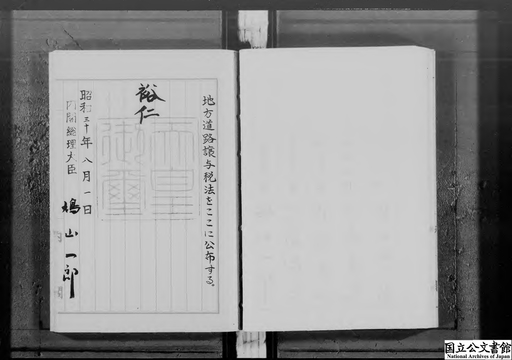 地方道路譲与税法をここに公布する。
裕仁
天皇御璽
昭和三十年八月一日
内閣総理大臣
鳩山一郎
国立公文書館
National Archives of Japan